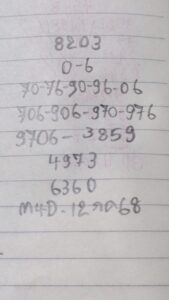 8203
0-6
70-76-90-96-06
706-906-970-976
9706-3859
4973
6360
M4D-12กค68